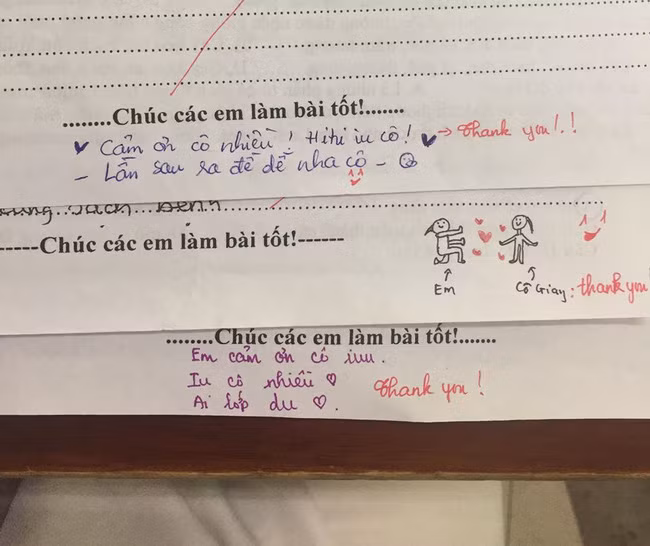 .........Chúc các em làm bài tốt!.......
Cảm ơn cô nhiều! Hihi iu cô! → Thank you!!
- Lần sau ra đề dễ nha cô -
-----Chúc các em làm bài tốt!------
Em
Cô Giay: thank you
........Chúc các em làm bài tốt!........
Em cảm ơn cô iuu.
Iu cô nhiều ♡ Thank you!
Ai lớp du ♡.